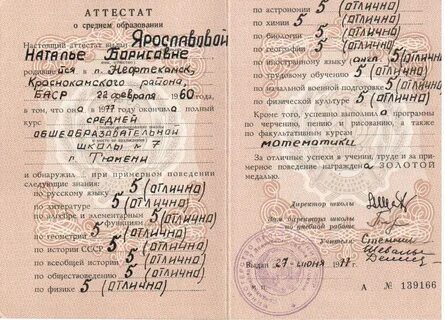 АТТЕСТАТ
о среднем образовании
Настоящий аттестат выдан Ярославовой
Наталье Борисовне
родившейся в п. Нефтекамск,
Краснокамского района,
БАСР 22 февраля 1960г.
в том, что она в 1977 окончила полный
курс средней
общеобразовательной
школы № 7
г. Тюмени
и обнаружил при примерном поведении
следующие знания:
по русскому языку 5 (отлично)
по литературе 5 (отлично)
по алгебре и элементарным
функциям 5 (отлично)
по геометрии 5 (отлично)
по истории СССР 5 (отлично)
по всеобщей истории 5 (отлично)
по обществоведению 5 (отлично)
по физике 5 (отлично)
по астрономии 5 (отлично)
по химии 5 (отлично)
по биологии 5 (отлично)
по географии 5 (отлично)
по иностранному языку (англ.) 5 (отлично)
по трудовому обучению 5 (отлично)
по начальной военной подготовке 5 (отлично)
по физической культуре 5 (отлично)
Кроме того, успешно выполнила программы
по черчению, пению и рисованию, а также
по факультативным курсам
математики
За отличные успехи в учении, труде и за при-
мерное поведение награждена ЗОЛОТОЙ
медалью.
Директор школы
Зам. директора школы
по учебной работе
Учителя:
Выдан 27 июня 1977
А № 139166